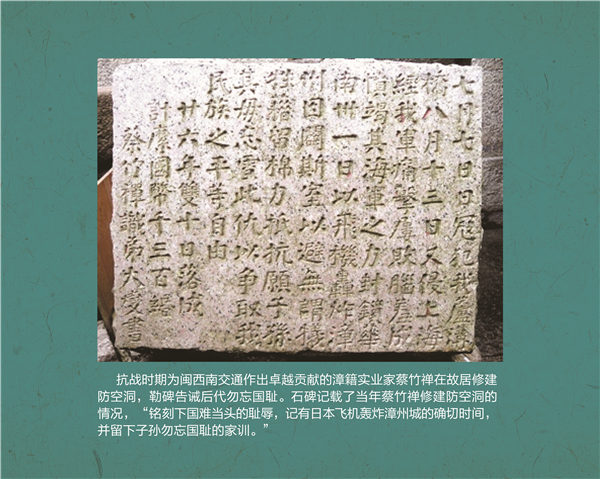 七月七日日寇犯我廬溝
橋八月十三日又侵上海
經我軍痛擊屢敗腦羞成
憤竭其海軍之力封鎖華
南卅一日以飛機轟炸漳
州因闢斯室以避無謂犧
牲藉留綿力抵抗願子孫
其毋忘雪此仇以争取我
民族之平等自由
廿六年雙十日落成
計糜國幣千三百
蔡竹禪識弟大燮書
抗战时期为闽西南交通作出卓越贡献的漳籍实业家蔡竹禅在故居修建
防空洞，勒碑告诫后代勿忘国耻。石碑记载了当年蔡竹禅修建防空洞的
情况，“铭刻下国难当头的耻辱，记有日本飞机轰炸漳州城的确切时间，
并留下子孙勿忘国耻的家训。”